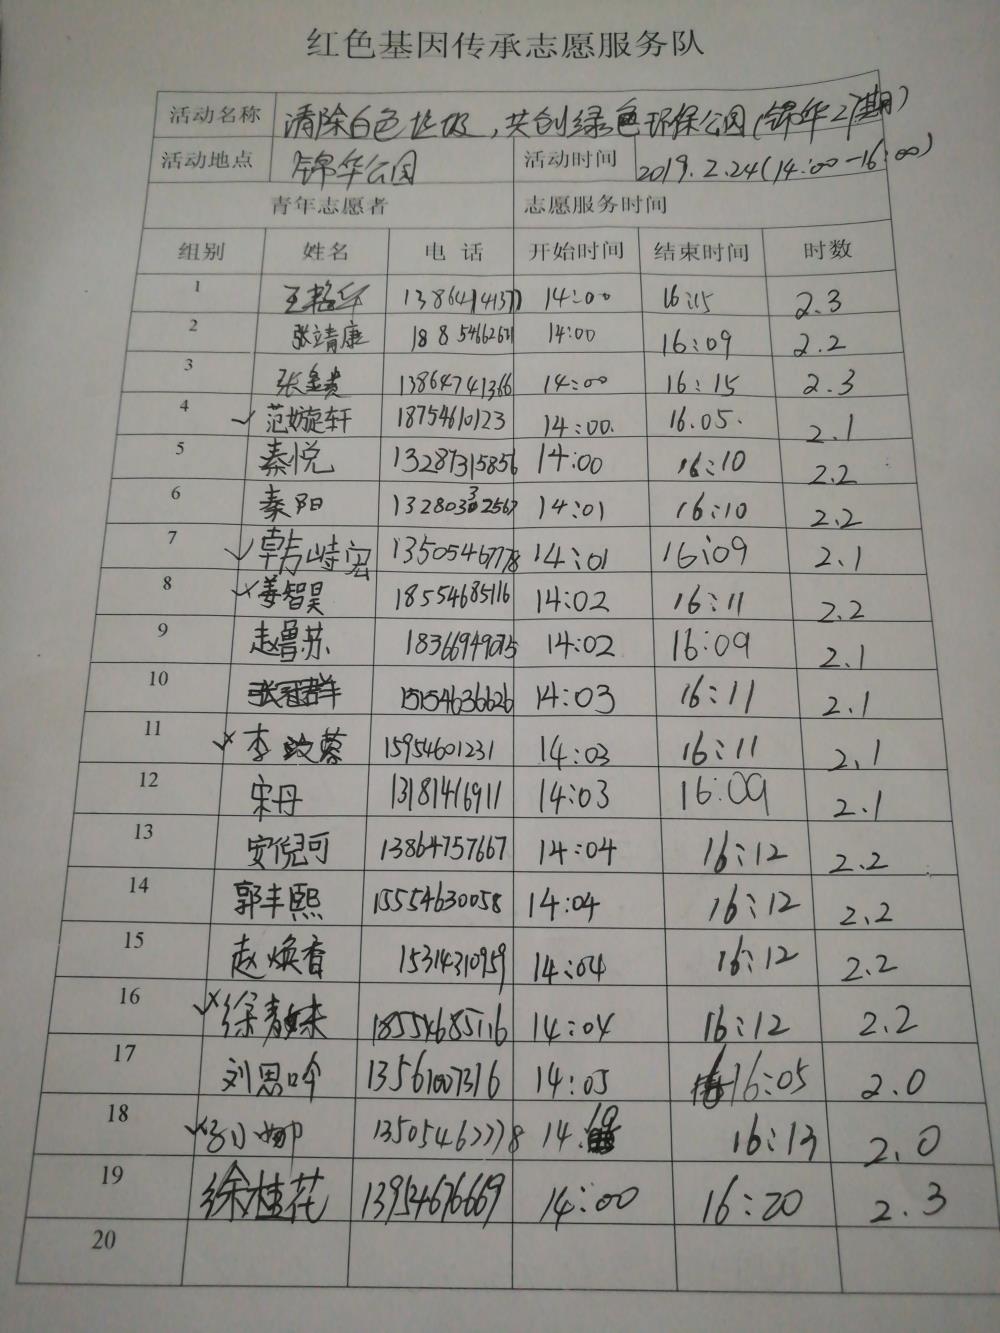 红色基因传承志愿服务队
活动名称 清除白色垃圾，共创绿色环保公园(锦华27期)
活动地点 锦华公园 活动时间 2019.2.24(14:00-16:00)
青年志愿者 志愿服务时间
组别 姓名 电话 开始时间 结束时间 时数
1 14:00 16:15 2.3
2 张靖康 14:00 16:09 2.2
3 张金贵 13864741366 14:00 16:15 2.3
4 范婉旋轩 18754610123 14:00. 16.05. 2.1
5 秦悦 13287315856 14:00 16:10 2.2
6 秦阳 14:01 16:10 2.2
7 13505467778 14:01 16:09 2.1
8 姜智昊 18554685116 14:02 16:11 2.2
9 赵鲁苏 14:02 16:09 2.1
10 张冠群 15154636626 14:03 16:11 2.1
11 15954601231 14:03 16:11 2.1
12 宋丹 13181416911 14:03 16:09 2.1
13 安倪可 13864757667 14:04 16:12 2.2
14 郭丰熙 15554630058 14:04 16:12 2.2
15 赵焕香 15314310959 14:04 16:12 2.2
16 18554685116 14:04 16:12 2.2
17 刘思吟 13561007316 14:05 16:05 2.0
18 13505467778 16:13 2.0
19 徐桂花 13954676669 14:00 16:20 2.3
20